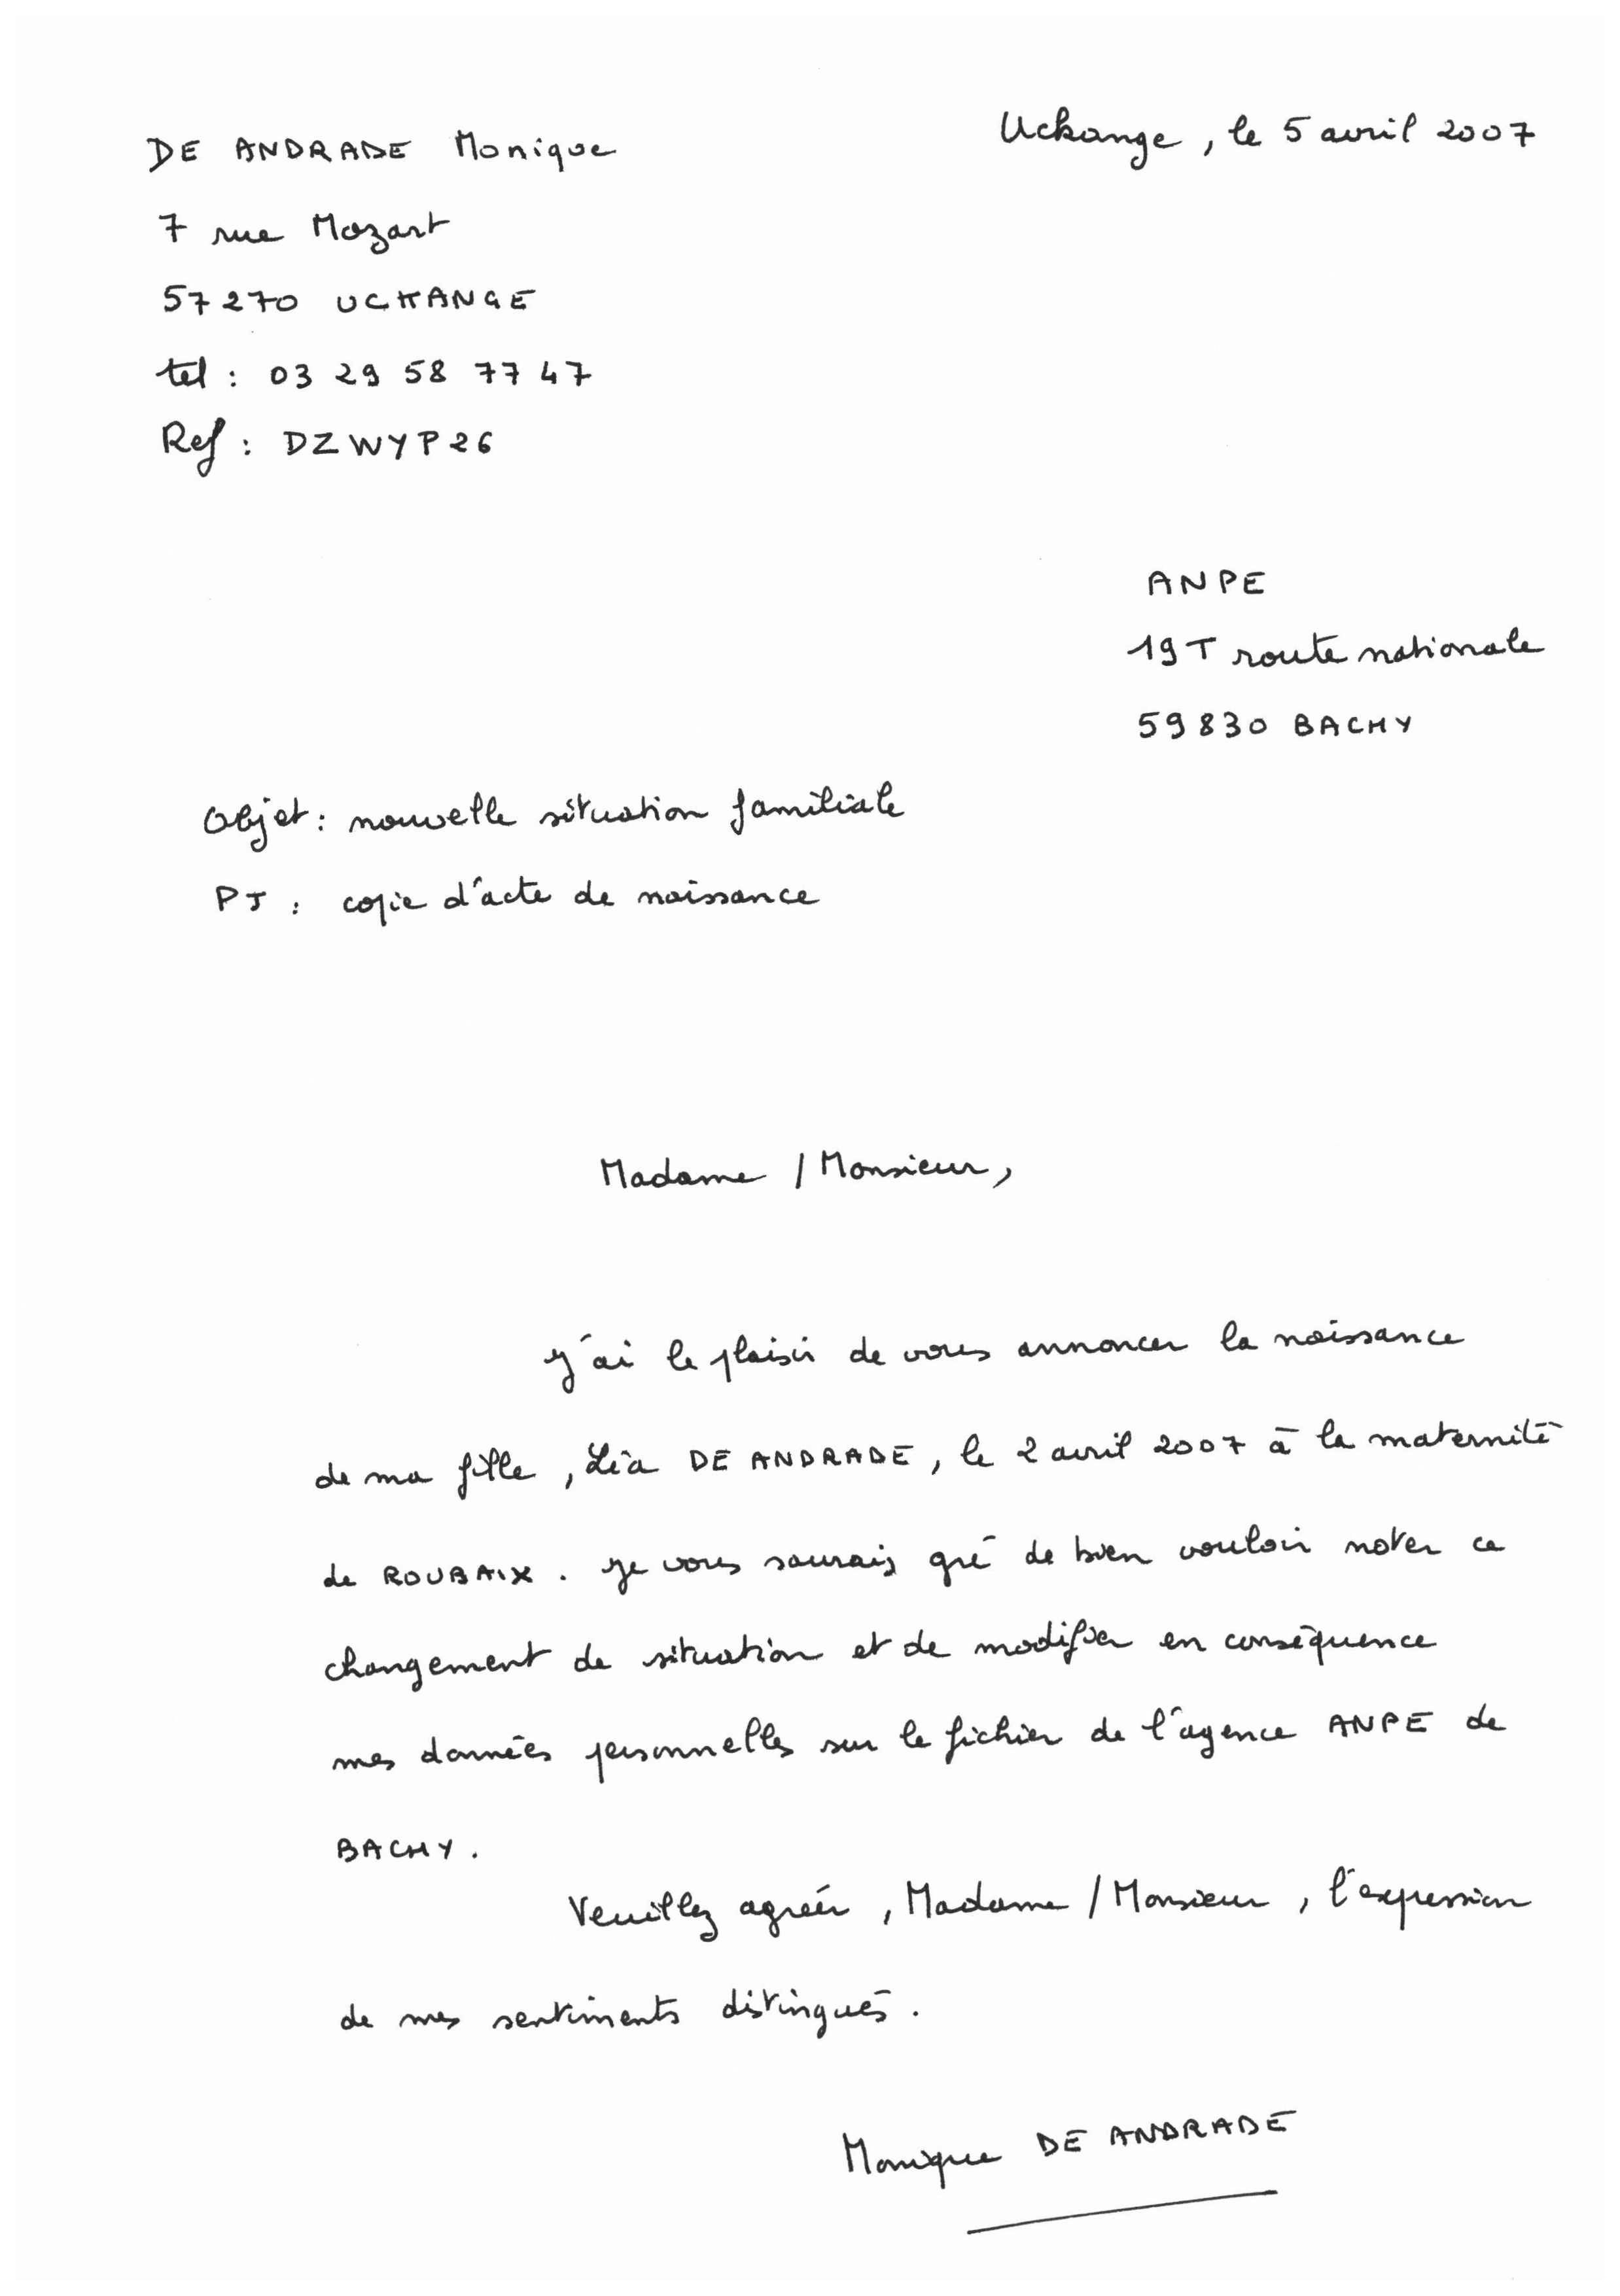 DE ANDRADE Monique
Uckange, le 5 avril 2007
7 rue Mozart
57270 UCKANGE
tel : 03 29 58 77 47
Ref : DZWYP26
ANPE
19T route nationale
59830 BACHY
Objet : nouvelle situation familiale
PJ : copie d'acte de naissance
Madame / Monsieur,
J'ai le plaisir de vous annoncer la naissance
de ma fille, Léa DE ANDRADE, le 2 avril 2007 à la maternité
de ROUBAIX. Je vous saurais gré de bien vouloir noter ce
changement de situation et de modifier en conséquence
mes données personnelles sur le fichier de l'agence ANPE de
BACHY.
Veuillez agréer, Madame / Monsieur, l'expression
de mes sentiments distingués.
Monique DE ANDRADE